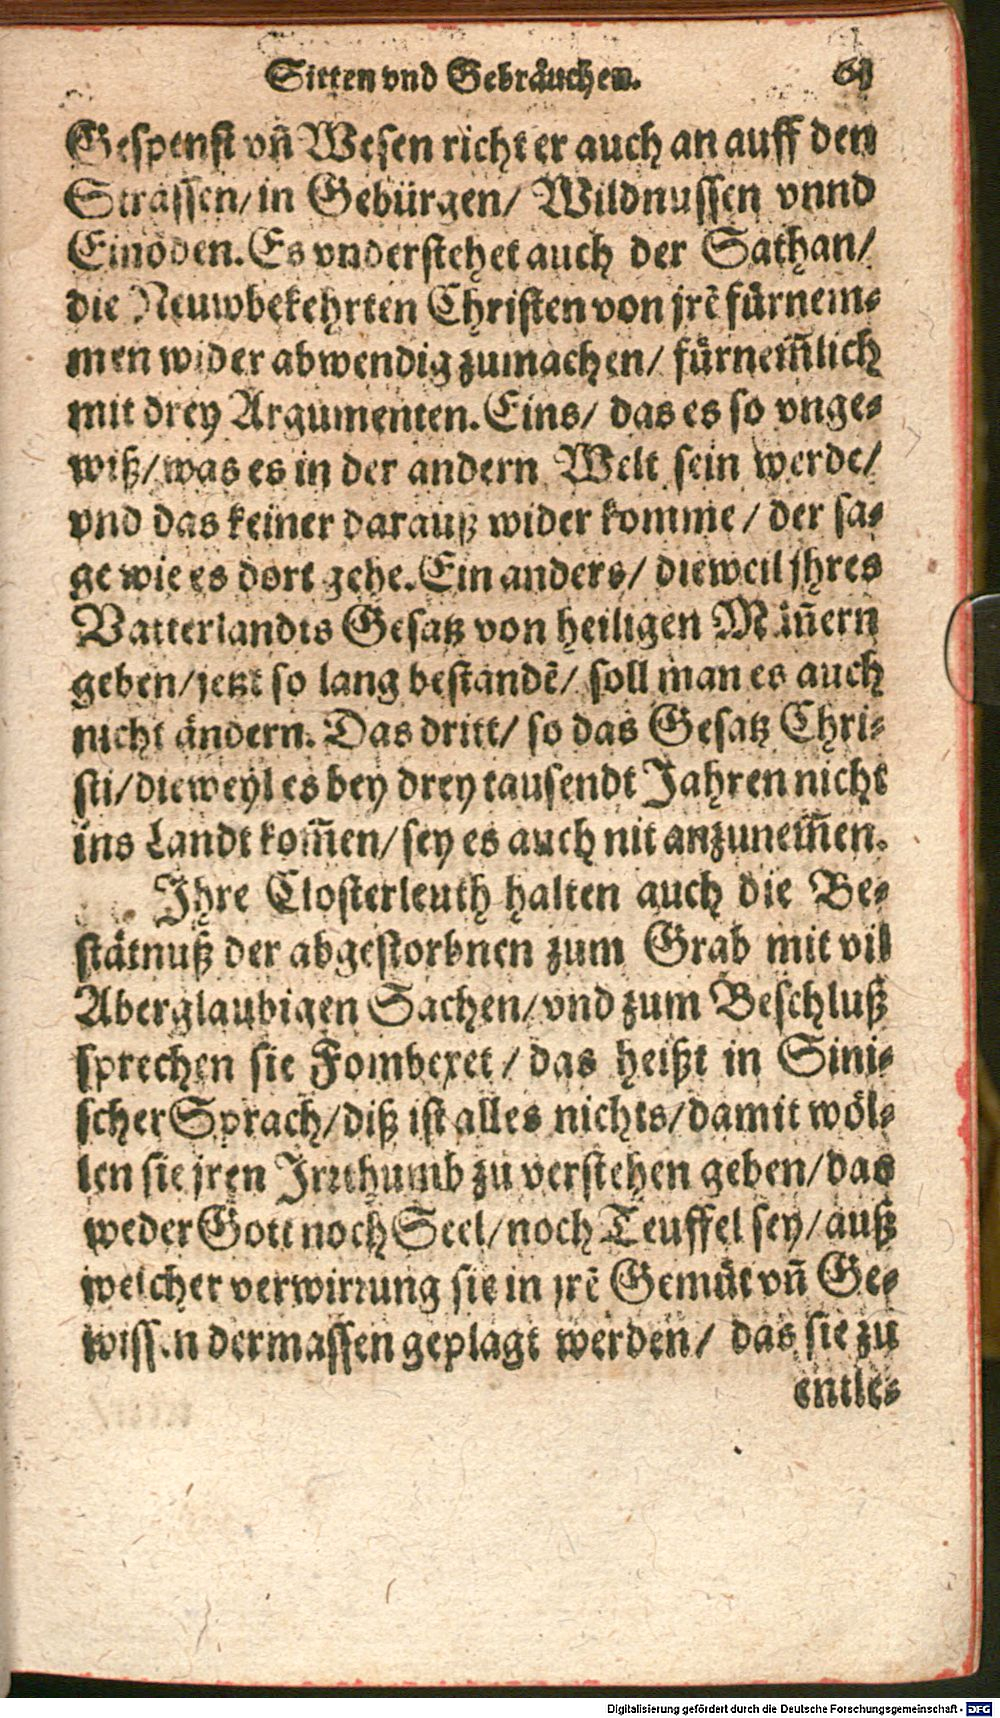 Sitten vnd Gebräuchen. 61
Gespenst vñ Wesen richt er auch an auff den
Strassen/ in Gebürgen/ Wildnussen vnnd
Einöden. Es vnderstehet auch der Sathan/
die Neuwbekehrten Christen von jrē fürnem-
men wider abwendig zumachen/ fürnem̃lich
mit drey Argumenten. Eins/ das es so vnge-
wiß/ was es in der andern Welt sein werde/
vnd das keiner darauß wider komme/ der sa-
ge wie es dort gehe. Ein anders/ dieweil jhres
Vatterlandts Gesatz von heiligen Män̄ern
geben/ jetzt so lang bestandē/ soll man es auch
nicht ändern. Das dritt/ so das Gesatz Chri-
sti/ dieweyl es bey drey tausendt Jahren nicht
ins Landt kom̃en/ sey es auch nit anzunem̃en.
Jhre Closterleuth halten auch die Be-
stätnuß der abgestorbnen zum Grab mit vil
Aberglaubigen Sachen/ vnd zum Beschluß
sprechen sie Fombexet/ das heißt in Sini-
scher Sprach/ diß ist alles nichts/ damit wöl-
len sie jren Jrrthumb zu verstehen geben/ das
weder Gott noch Seel/ noch Teuffel sey/ auß
welcher verwirrung sie in jrē Gemüt vñ Ge-
wissen dermassen geplagt werden/ das sie zu
entle-
Digitalisierung gefördert durch die Deutsche Forschungsgemeinschaft - DFG